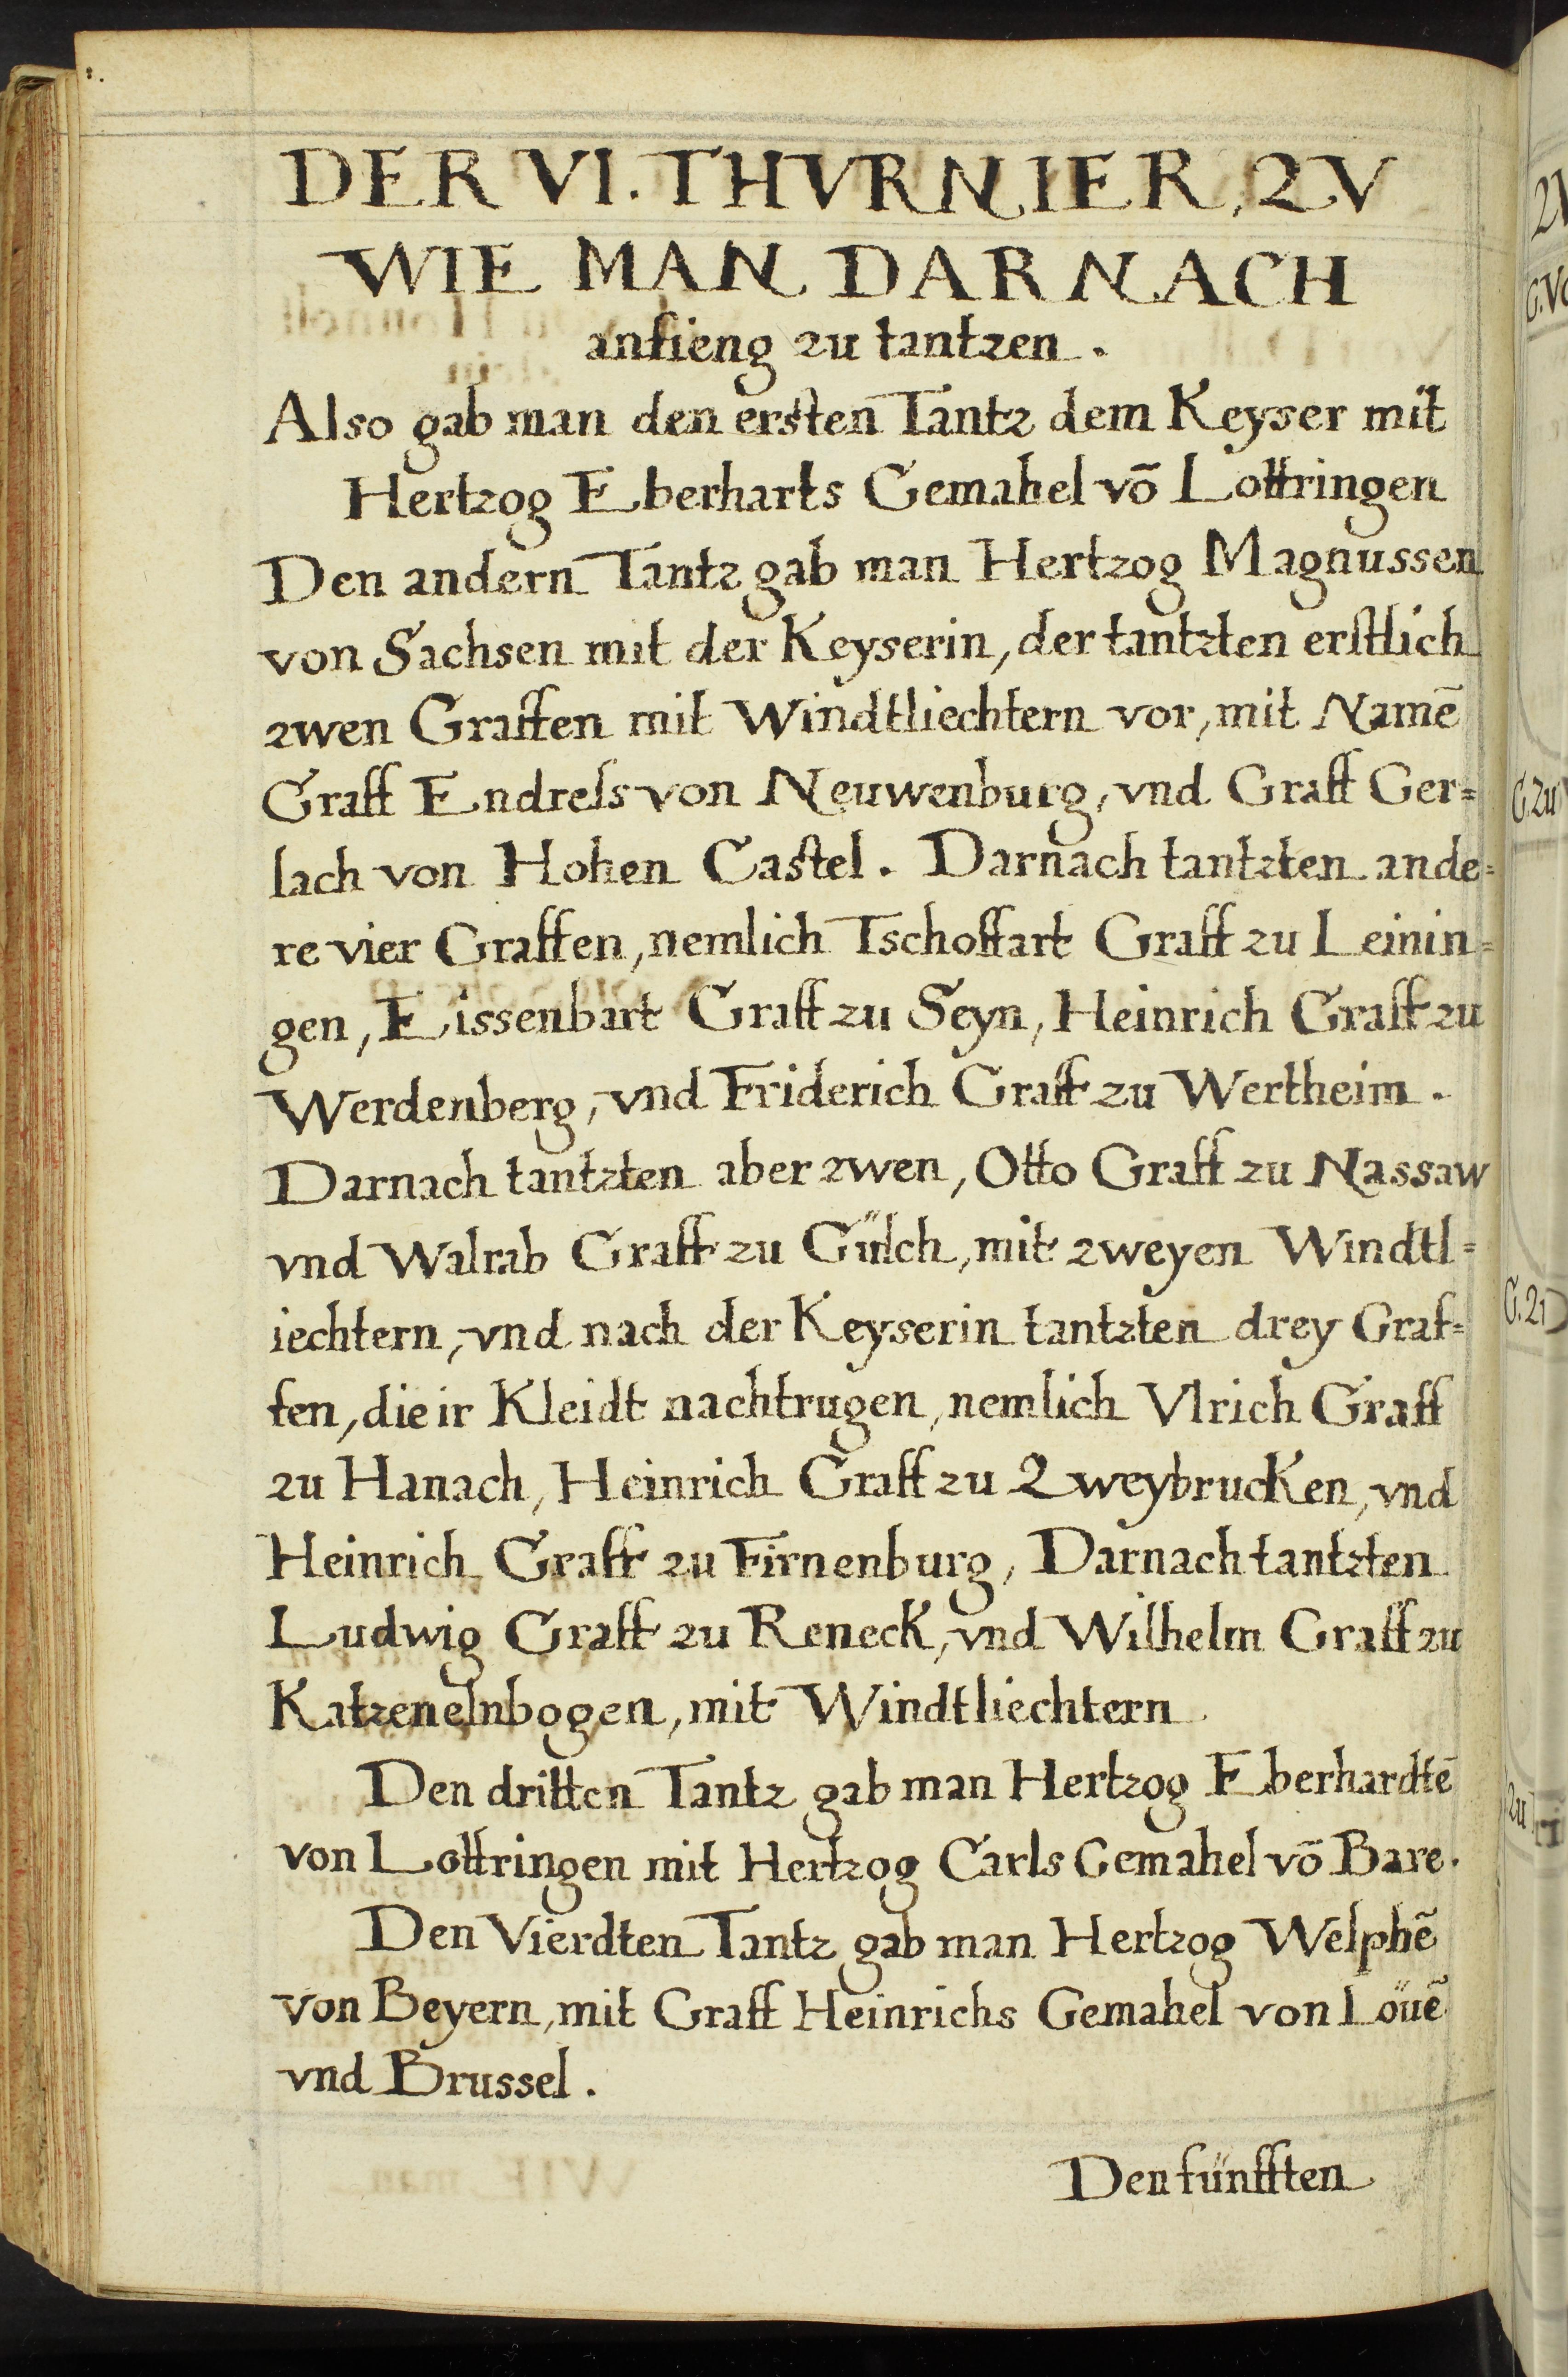 DER VI. THVRNIER, ZV
WIE MAN DARNACH
anfieng zu tantzen.
Also gab man den ersten Tantz dem Keyser mit
Hertzog Eberharts Gemahel võ Lottringen
Den andern Tantz gab man Hertzog Magnussen
von Sachsen mit der Keyserin, der tantzten erstlich
zwen Graffen mit Windtliechtern vor, mit Namẽ
Graff Endrels von Neuwenburg, vnd Graff Ger=
lach von Hohen Castel. Darnach tantzten ande=
re vier Graffen, nemlich Tschoffart Graff zu Leinin=
gen, Eissenbart Graff zu Seyn, Heinrich Graff zu
Werdenberg, vnd Friderich Graff zu Wertheim.
Darnach tantzten aber zwen, Otto Graff zu Nassaw
vnd Walrab Graff zu Gülch, mit zweyen Windtl=
iechtern, vnd nach der Keyserin tantzten drey Graf=
fen, die ir Kleidt nachtrugen, nemlich Vlrich Graff
zu Hanach, Heinrich Graff zu Zweybrucken, vnd
Heinrich Graff zu Firnenburg, Darnach tantzten
Ludwig Graff zu Reneck, vnd Wilhelm Graff zu
Katzenelnbogen, mit Windtliechtern.
Den dritten Tantz gab man Hertzog Eberhardtẽ
von Lottringen mit Hertzog Carls Gemahel võ Bare.
Den Vierdten Tantz gab man Hertzog Welphẽ
von Beyern, mit Graff Heinrichs Gemahel von Löuẽ
vnd Brussel.
Den fünfften